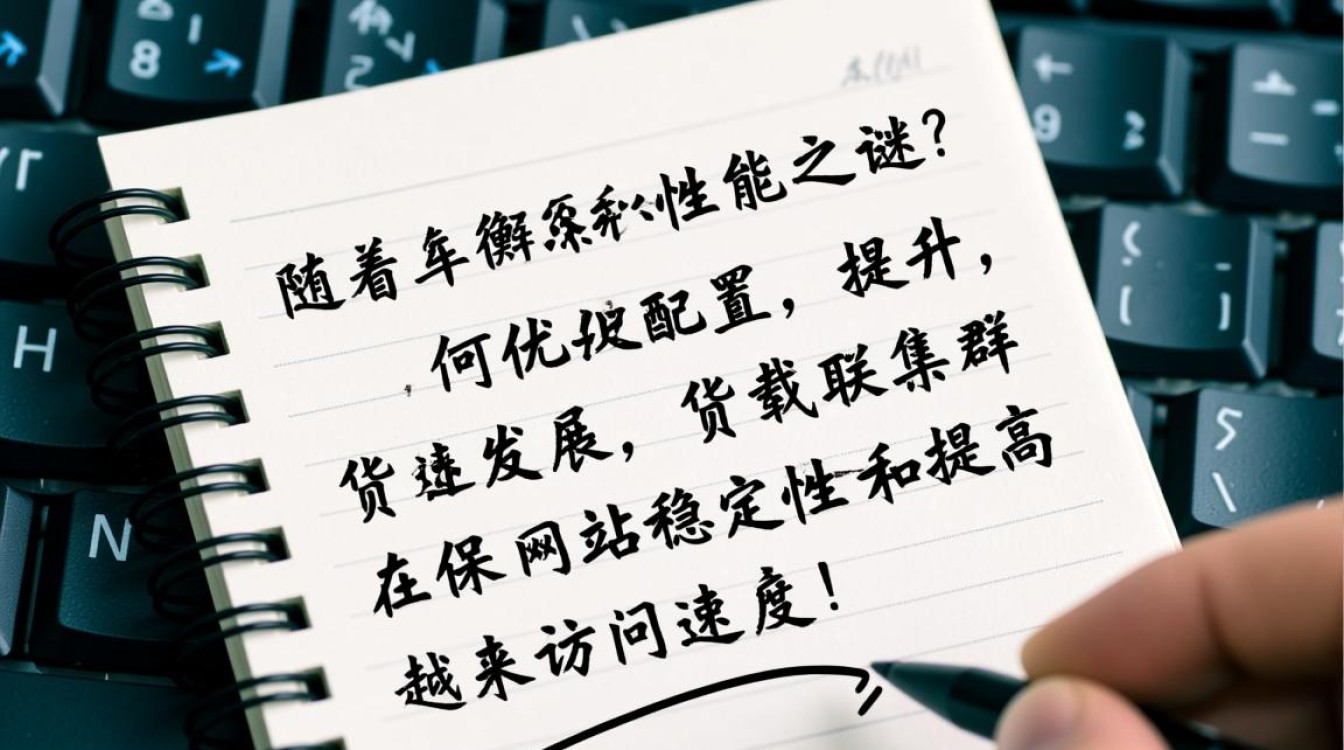 随着车衡性能之谜?
何优配置，提升，
货速发展，货载联集群
在保网站稳定性和提高
越来访问速度!
8
H
N
9
5